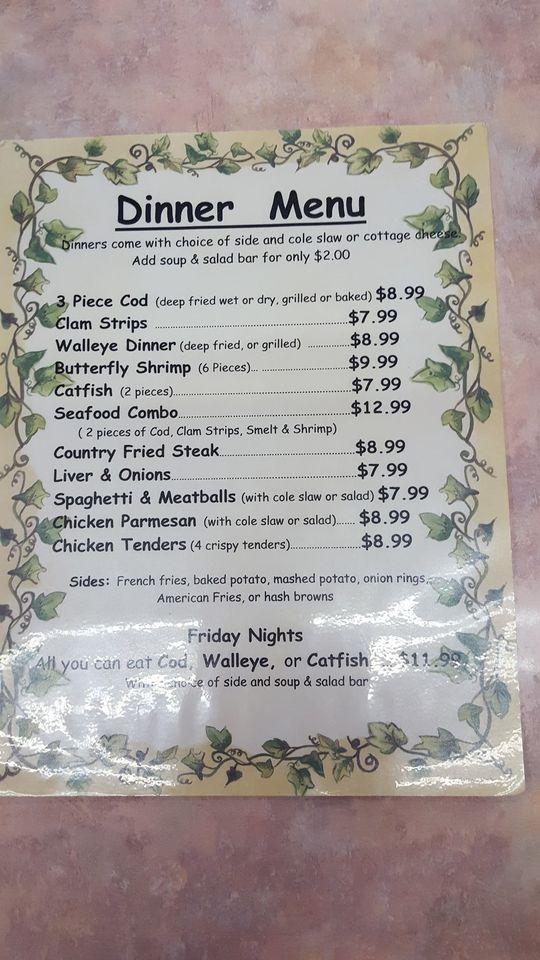 Dinner Menu
Dinners come with choice of side and cole slaw or cottage cheese.
Add soup & salad bar for only $2.00
3 Piece Cod (deep fried wet or dry, grilled or baked) $8.99
Clam Strips ................................................$7.99
Walleye Dinner (deep fried, or grilled) ............$8.99
Butterfly Shrimp (6 Pieces)... ......................$9.99
Catfish (2 pieces)............................................$7.99
Seafood Combo...........................................$12.99
( 2 pieces of Cod, Clam Strips, Smelt & Shrimp)
Country Fried Steak.................................$8.99
Liver & Onions.............................................$7.99
Spaghetti & Meatballs (with cole slaw or salad) $7.99
Chicken Parmesan (with cole slaw or salad)...... $8.99
Chicken Tenders (4 crispy tenders).................$8.99
Sides: French fries, baked potato, mashed potato, onion rings,
American Fries, or hash browns
Friday Nights
All you can eat Cod, Walleye, or Catfish ... $11.99
choice of side and soup & salad bar